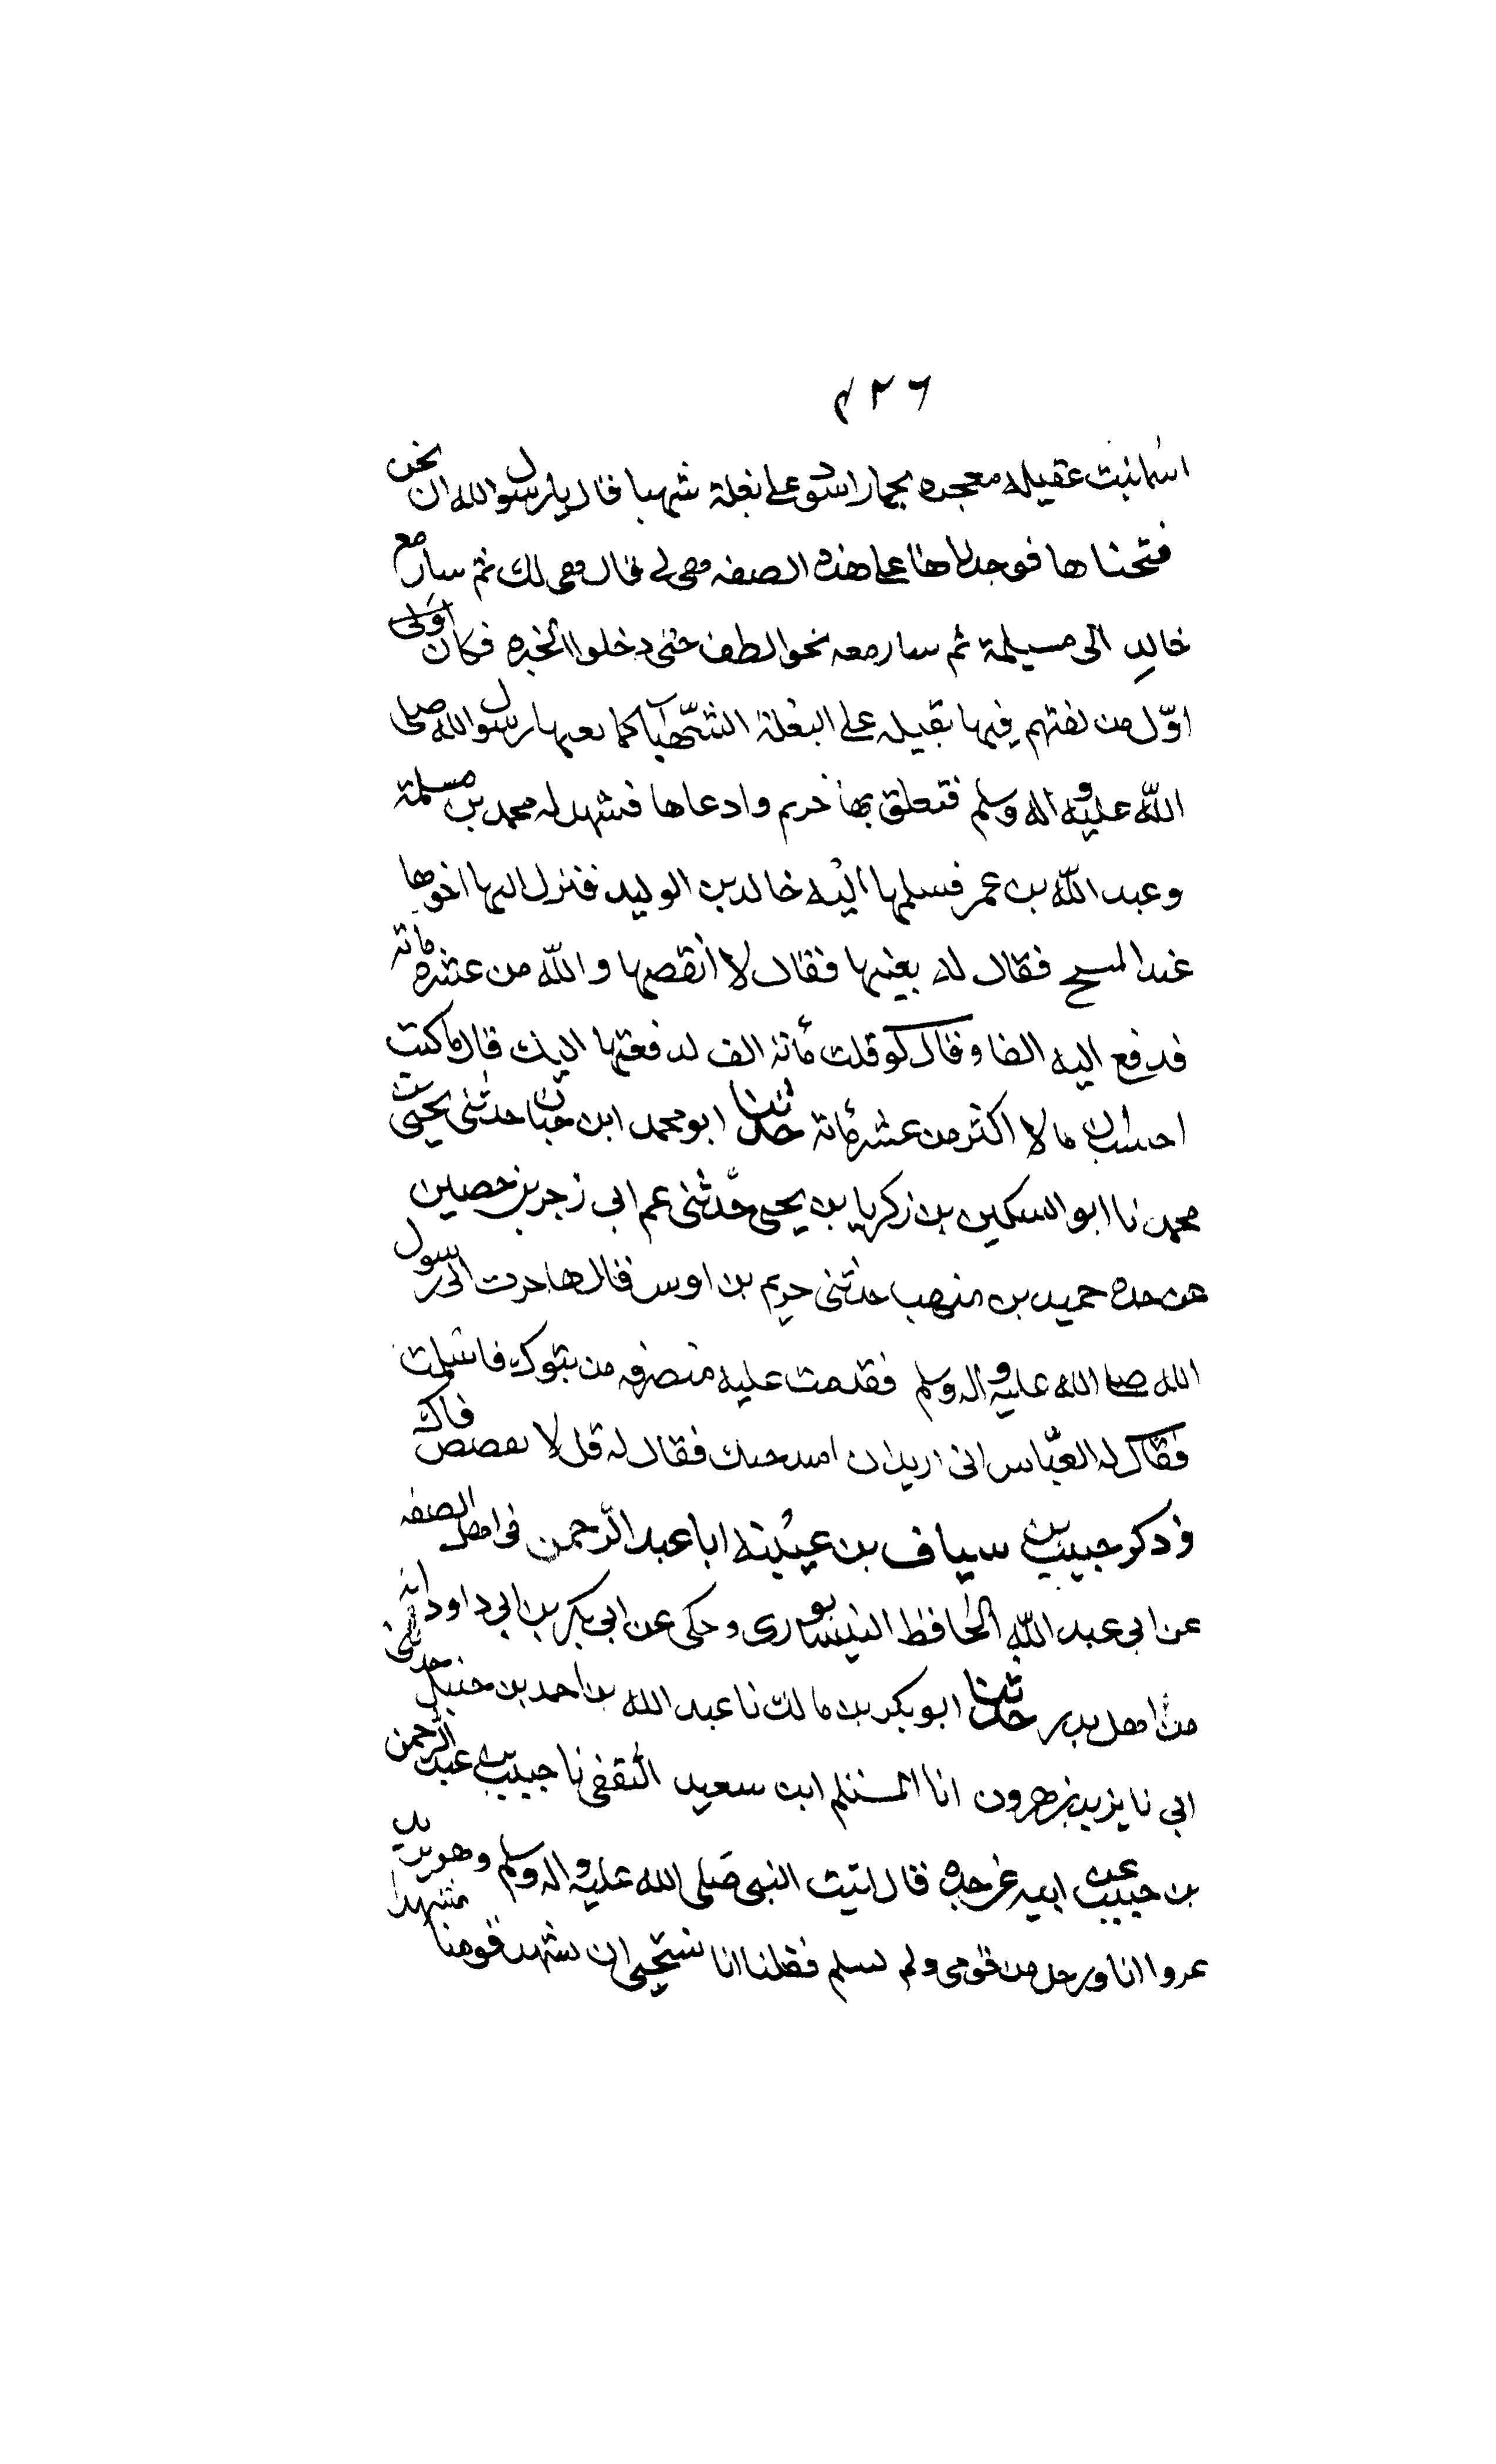 ٤٢٦
اسما بنت عقيله معجره بخمار اسود على بغلة شهبا قال يا رسول الله ان نحن
فتحناها فوجدناها على هذه الصفه وهى لى قال وهى لك ثم سار مع
خالد الى مسيلمة ثم سار معه نحو الطف حتى دخلوا الحيره فكان
اوّل من لقيهم فيها بقيله على البغلة الشّهبا كما رسول الله صلى
اللّه عليه واله وسلم فتعلق بها خريم وادعاها فشهد له محمد بن مسلمة
وعبد اللّه بن عمر فسلمها اليه خالد بن الوليد فنزل اليها اخوها
عبد المسيح فقال له بعنيها فقال لا انقصها و اللّه من عشره مائة
فدفع اليه الفا وقال لو قلت مائة الف لدفعتها اليك قال ما كنت
احسب ان مالا اكثر من عشر مائة حدثنا ابو محمد ابن حبان حدثنى يحيى بن
محمد نا ابو السكين بن زكريا بن يحيى حدثنى عم ابى زجر بن حصين
عن جده حميد بن منهب حدثنى خريم بن اوس قال هاجرت الى رسول
الله صلى الله عليه واله وسلم فقدمت عليه منصرفه من تبوك فاسلمت
فقال له العبّاس انى اريد ان امتدحك فقال له قل لا يفضض فاك
وذكر حبيب بن سياف بن عيينه ابا عبد الرّحمن فى اهل الصفه
عن ابى عبد اللّه الحافظ النيسابورى وحكى عن ابى بكر بن ابى داود انه
من اهل بدر حدثنا ابو بكر بن مالك نا عبد الله بن احمد بن حنبل حدثنى
ابى نا يزيد بن هرون انا المستلم ابن سعيد الثقفى نا حبيب بن عبد الرّحمن
بن حبيب عن ابيه عن جده قال اتيت النبى صلى الله عليه واله وسلم وهو يريد
غزوا انا ورجل من قومى ولم نسلم فقلنا انا نستحيى ان نشهد قومنا مشهدا